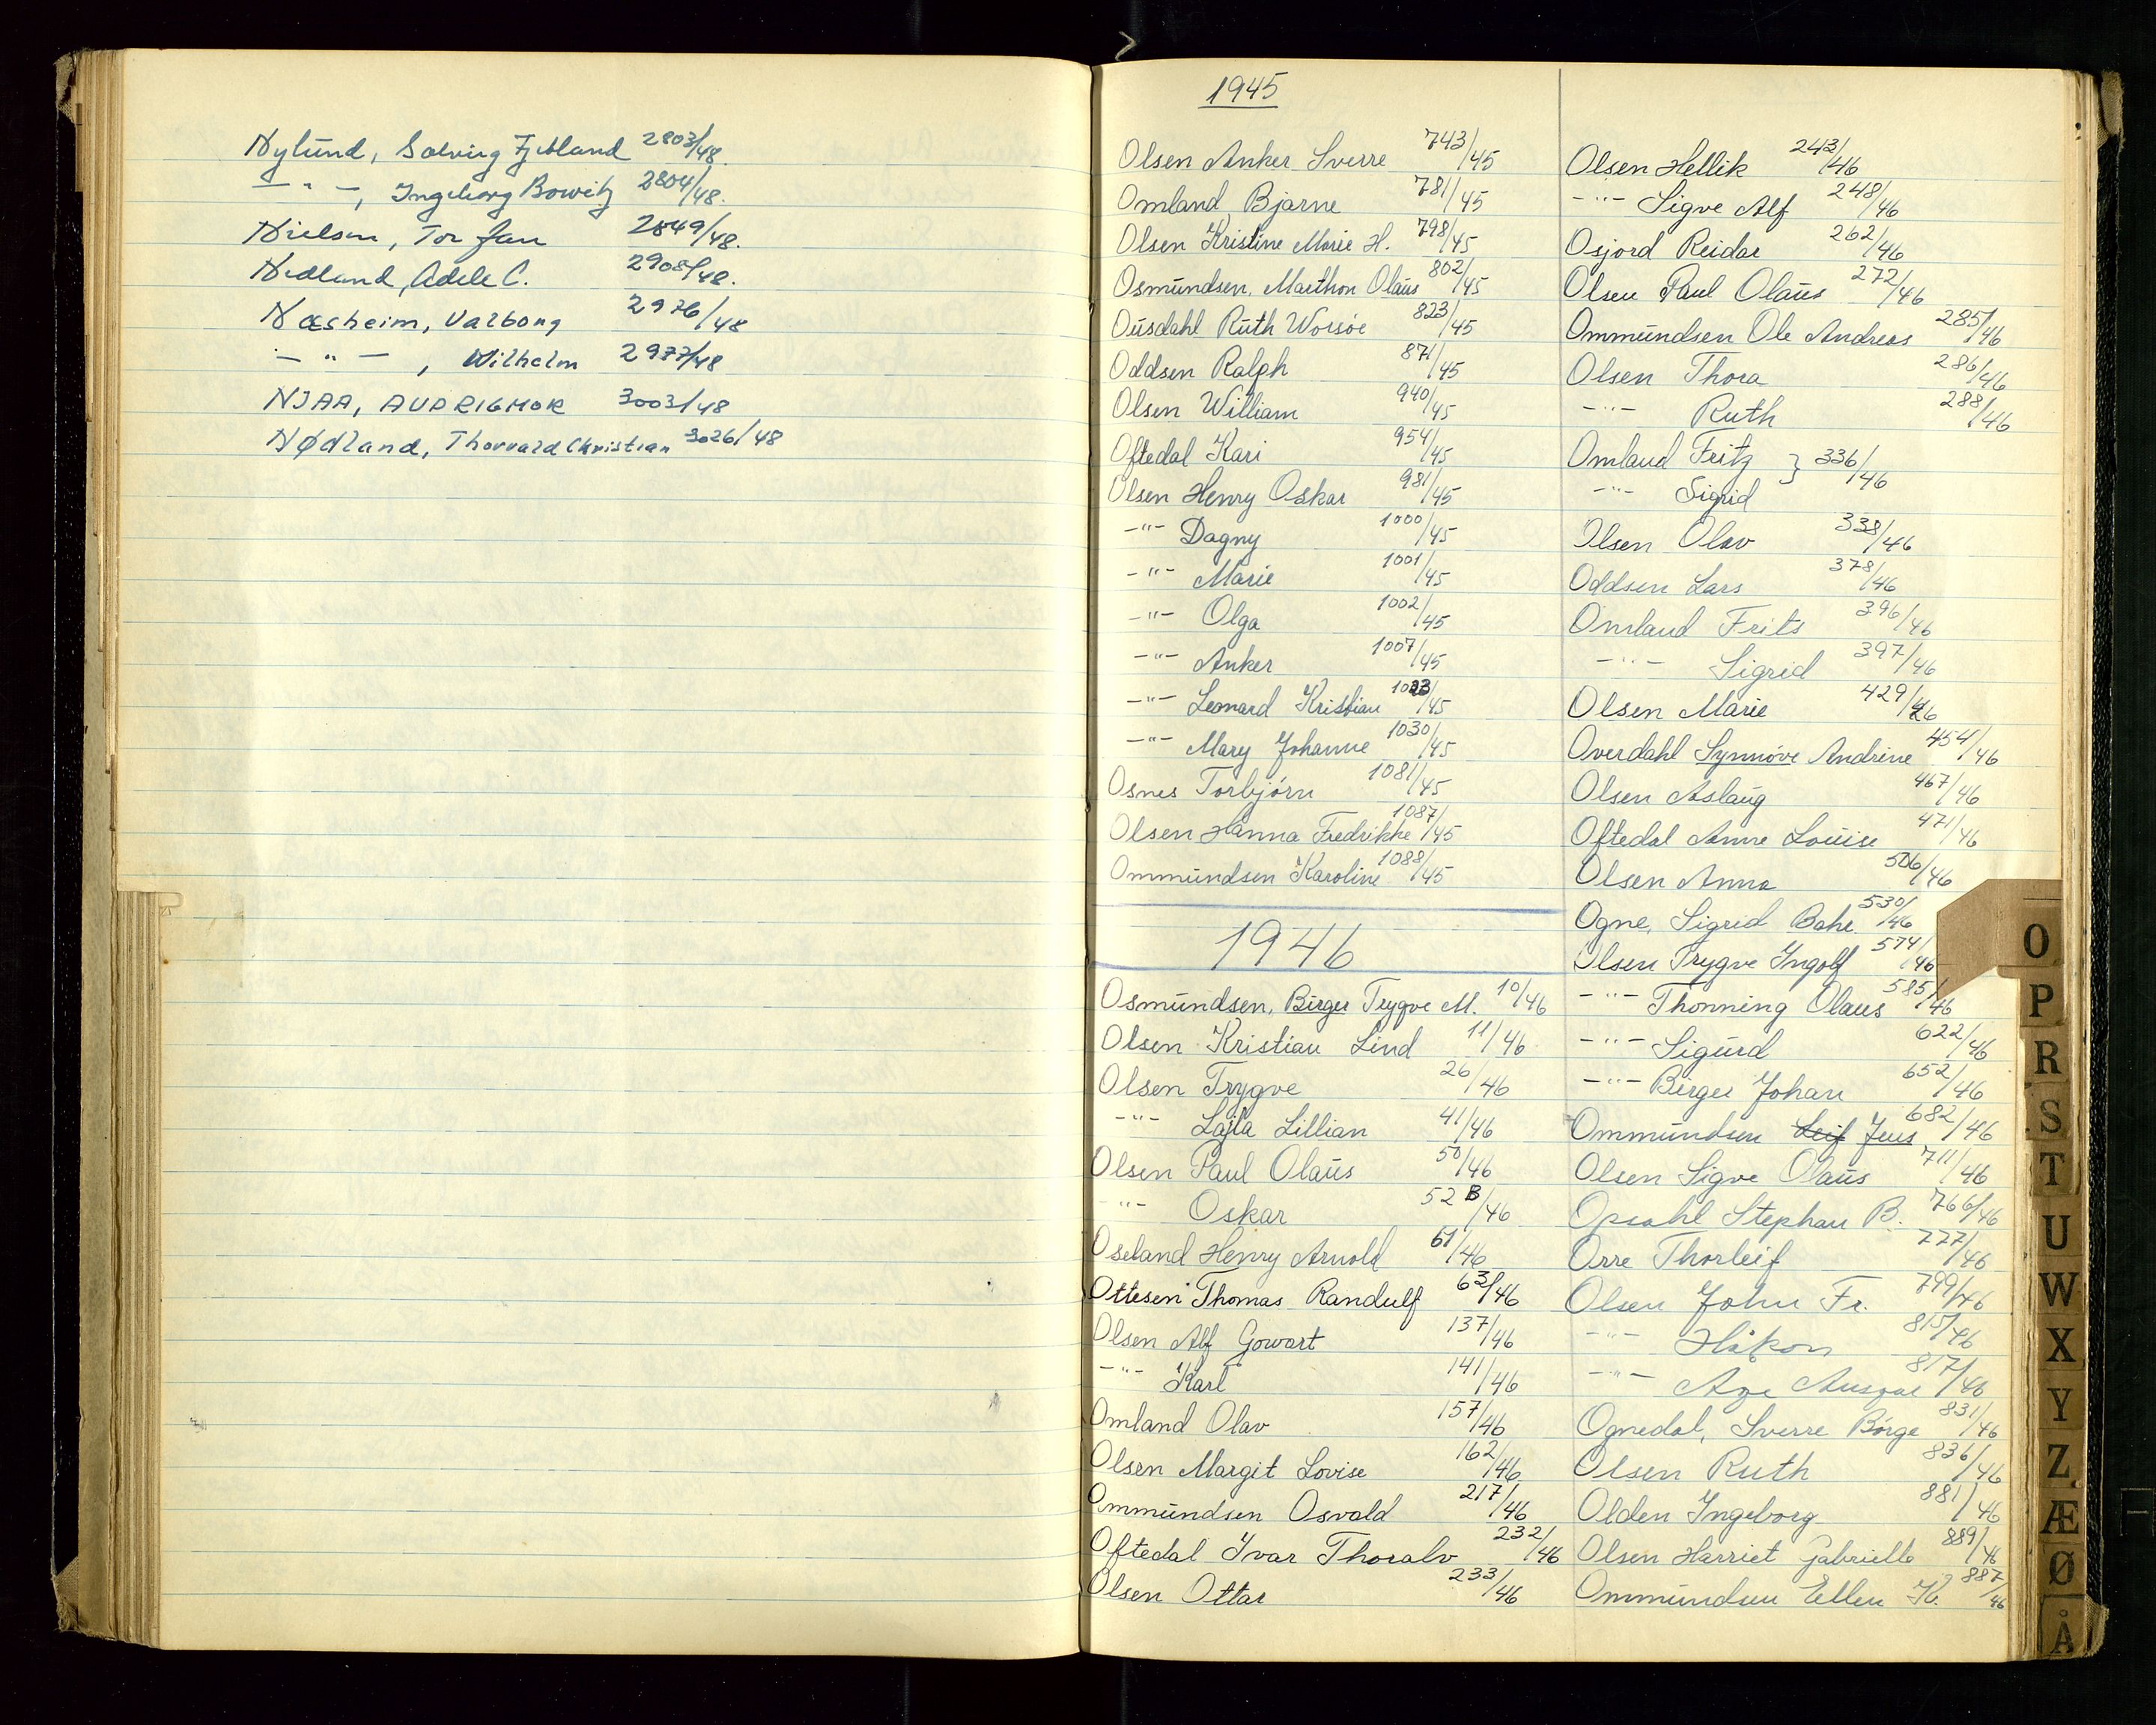 Nylund, Solveig Fjetland 2803/48.
— " — , Ingeborg Bowitz 2804/48.
Nielsen, Tor Jan 2849/48.
Nedland, Adele C. 2908/48.
Næsheim, Valborg 2976/48
— " — , Wilhelm 2977/48
NJAA, AUD RIGMOR 3003/48
Nødland, Thorvald Christian 3026/48
1945
Olsen Anker Sverre 743/45
Omland Bjarne 781/45
Olsen Kristine Marie H. 798/45
Osmundsen, Marthon Olaus 802/45
Ousdahl Ruth Worsøe 823/45
Oddsen Ralph 871/45
Olsen William 940/45
Oftedal Kari 954/45
Olsen Henry Oskar 981/45
—"— Dagny 1000/45
—"— Marie 1001/45
—"— Olga 1002/45
—"— Anker 1007/45
—"— Leonard Kristian 1023/45
—"— Mary Johanne 1030/45
Osnes Torbjørn 1081/45
Olsen Hanna Fredrikke 1087/45
Ommundsen Karoline 1088/45
1946
Osmundsen, Birger Trygve M. 10/46
Olsen Kristian Lind 11/46
Olsen Trygve 26/46
—"— Lajla Lillian 41/46
Olsen Paul Olaus 50/46
—"— Oskar 52 B/46
Oseland Henry Arnold 61/46
Ottesen Thomas Randulf 63/46
Olsen Alf Gowart 137/46
—"— Karl 141/46
Omland Olav 157/46
Olsen Margit Lovise 162/46
Ommundsen Osvald 217/46
Oftedal Ivar Thoralv 232/46
Olsen Ottar 233/46
Olsen Hellik 243/46
—"— Sigve Alf 248/46
Osjord Reidar 262/46
Olsen Paul Olaus 272/46
Ommundsen Ole Andreas 285/46
Olsen Thora 286/46
—"— Ruth 288/46
Omland Fritz } 336/46
—"— Sigrid
Olsen Olav 338/46
Oddsen Lars 378/46
Omland Frits 396/46
—"— Sigrid 397/46
Olsen Marie 429/46
Overdahl Synnøve Andrine 454/46
Olsen Aslaug 467/46
Oftedal Anne Louise 471/46
Olsen Anna 506/46
Ogne, Sigrid Bahr 530/46
Olsen Trygve Ingolf 574/46
—"— Thonning Olaus 585/46
—"— Sigurd 622/46
—"— Birger Johan 652/46
Ommundsen Leif Jens 682/46
Olsen Sigve Olaus 711/46
Opsahl Stephan B. 766/46
Orre Thorleif 777/46
Olsen John Fr. 799/46
—"— Håkon 815/46
—"— Age 817/46
Ognedal, Sverre Børge 831/46
Olsen Ruth 836/46
Olden Ingeborg 881/46
Olsen Harriet Gabrielle 889/46
Ommundsen Ellen K. 887/46
O
P
R
S
T
U
W
X
Y
Z
Æ
Ø
Å